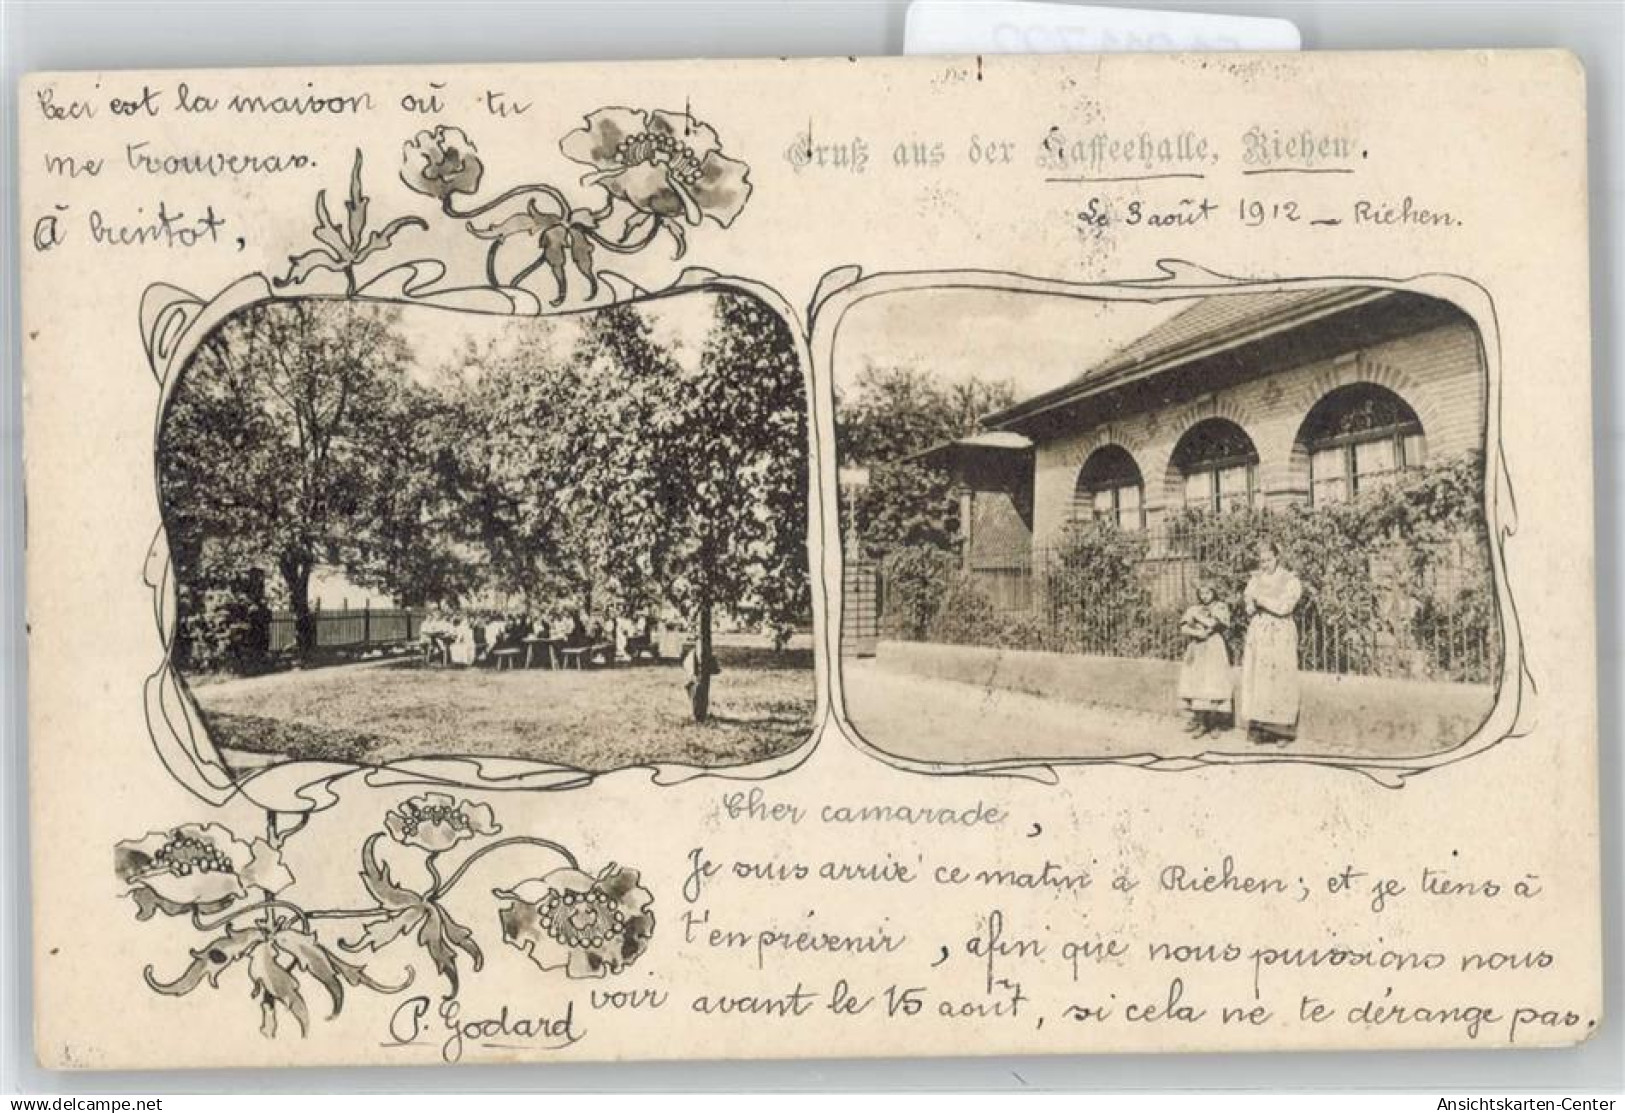 Ceci est la maison où tu
me trouveras.
À bientot,
Gruß aus der Kaffeehalle, Riehen.
Le 3 août 1912 – Riehen.
Cher camarade,
Je suis arrivé ce matin à Riehen; et je tiens à
t'en prévenir, afin que nous puissions nous
voir avant le 15 août, si cela ne te dérange pas.
P. Godard
delcampe.net
Ansichtskarten-Center